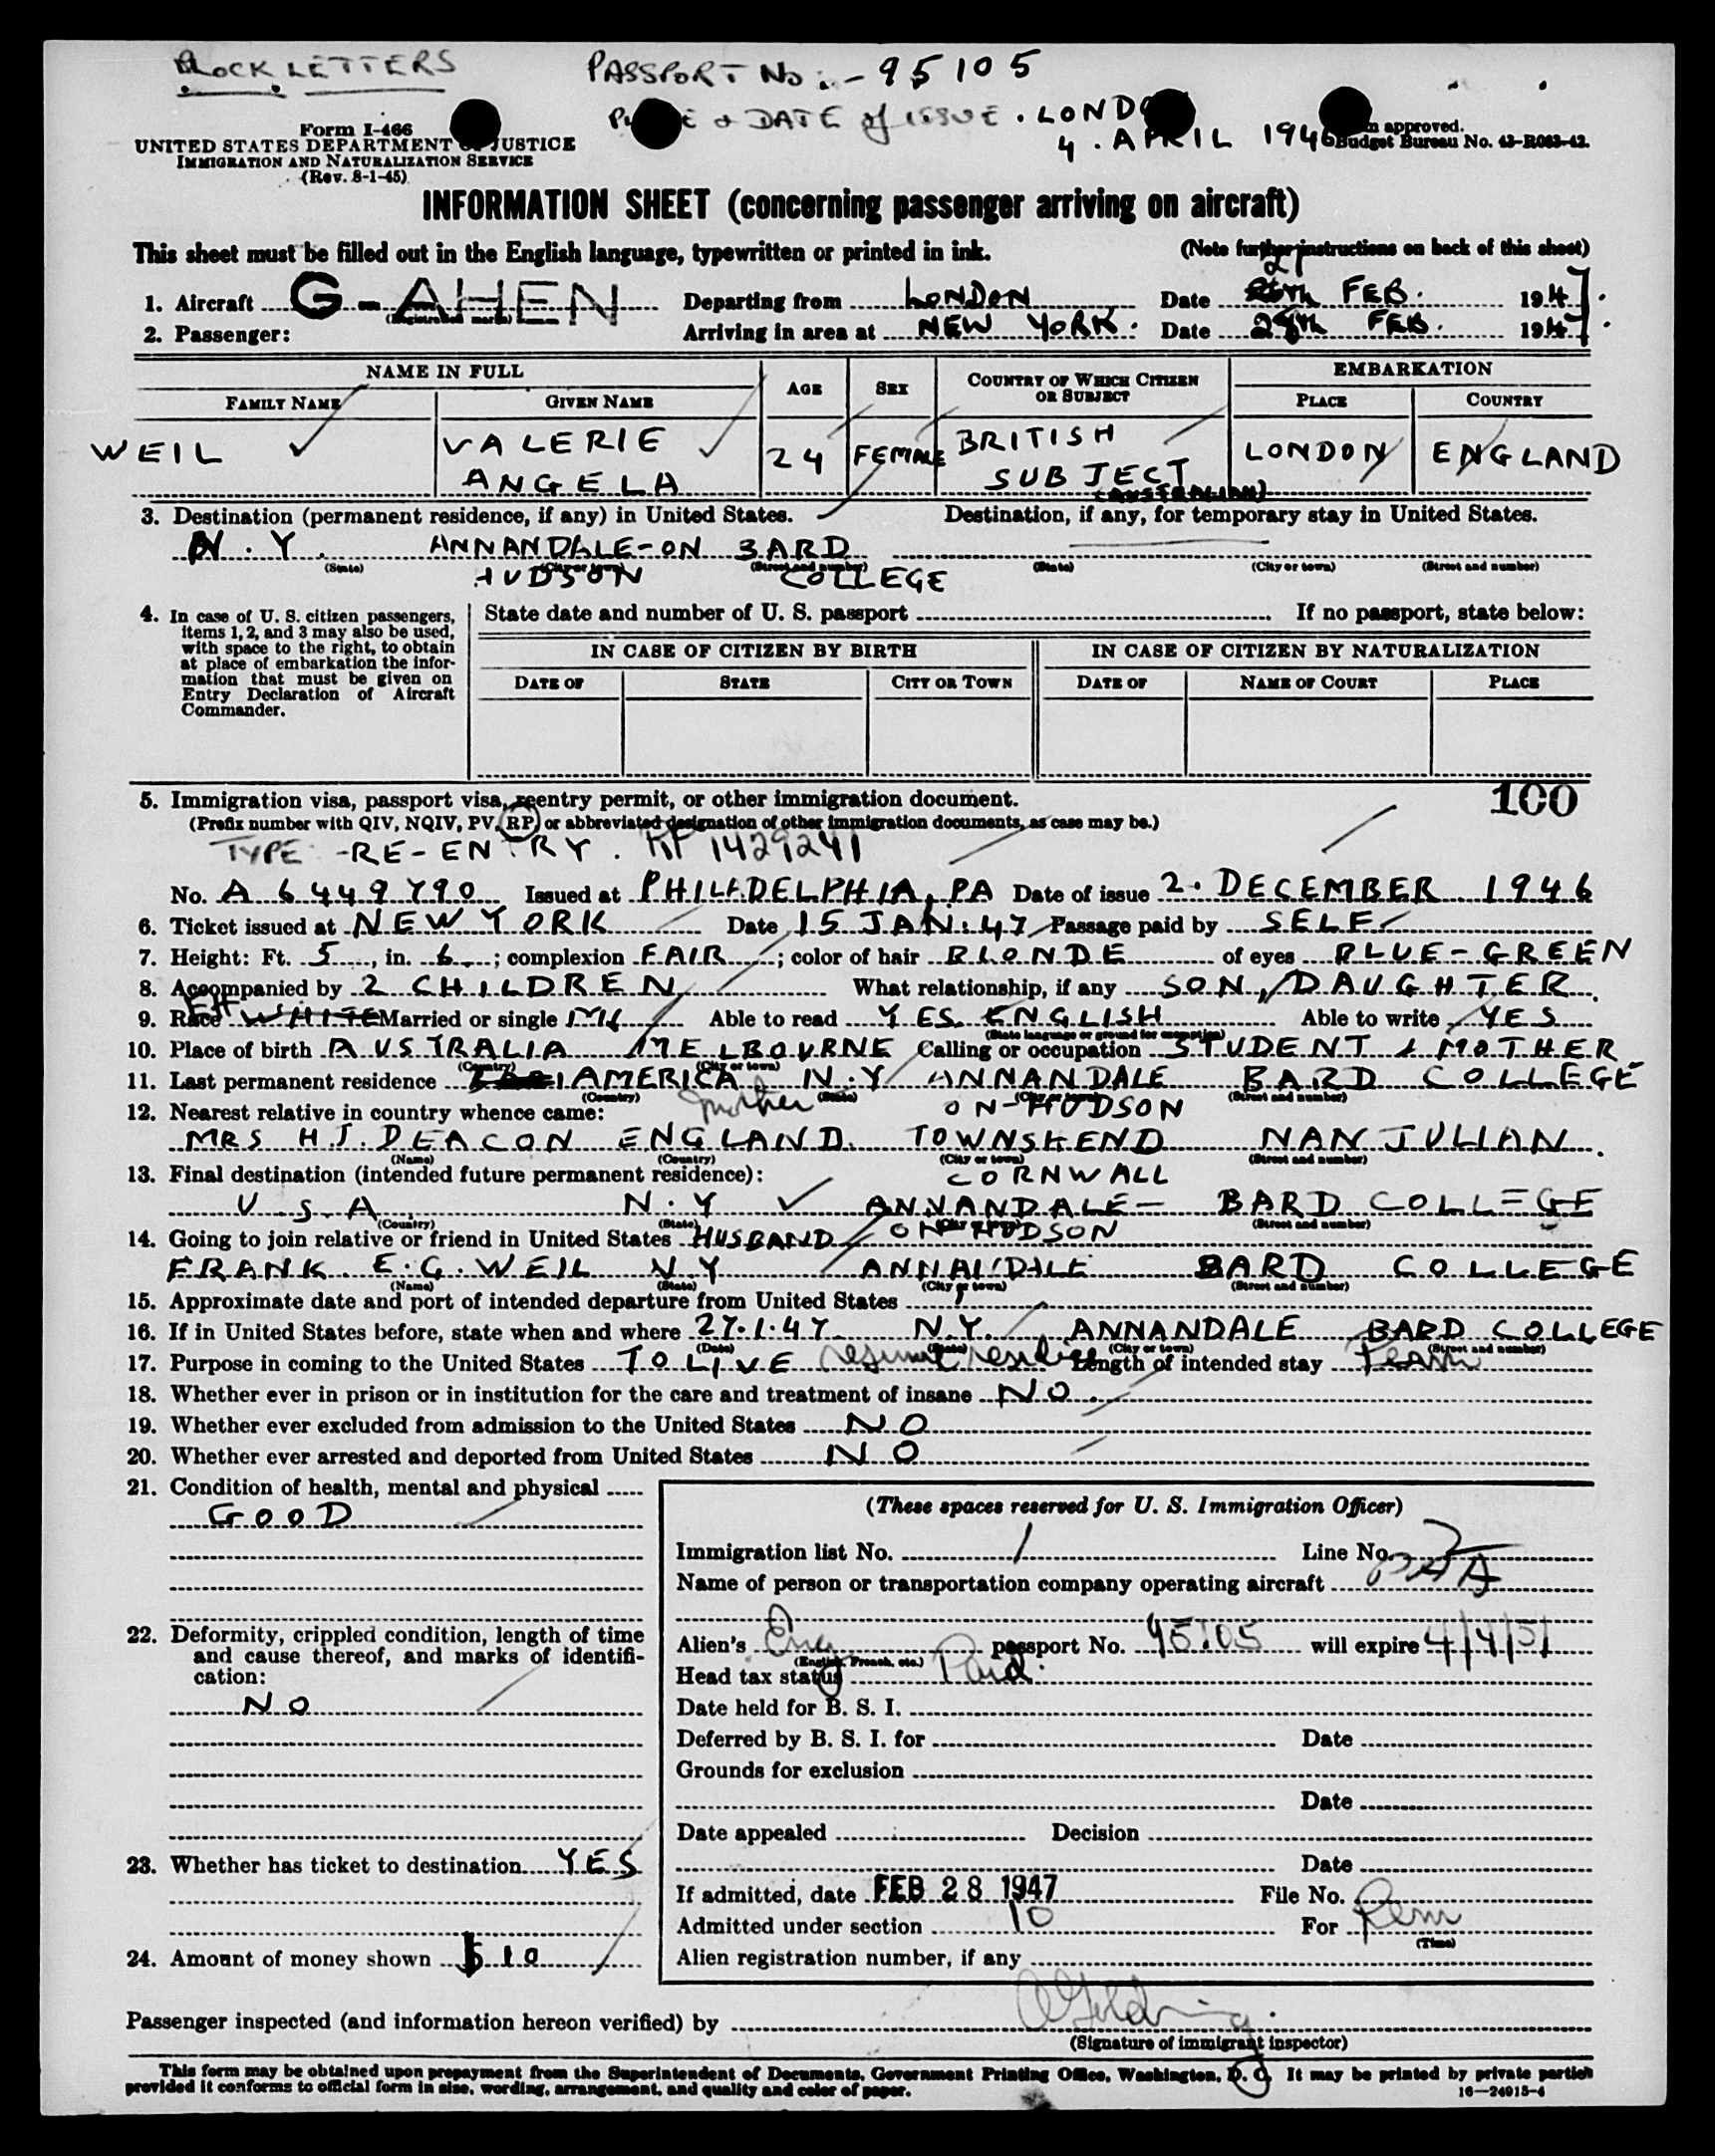 BLOCK LETTERS PASSPORT No :- 95105
& DATE of ISSUE . LONDON
4 . APRIL 1946
Form I-466
UNITED STATES DEPARTMENT OF JUSTICE
IMMIGRATION AND NATURALIZATION SERVICE
(Rev. 8-1-45)
approved.
Budget Bureau No. 43-R063-42.
INFORMATION SHEET (concerning passenger arriving on aircraft)
This sheet must be filled out in the English language, typewritten or printed in ink. (Note further instructions on back of this sheet)
1. Aircraft G-AHEN (Registration marks) Departing from LONDON Date FEB. 1947.
2. Passenger: Arriving in area at NEW YORK. Date 28th FEB. 1947.
NAME IN FULL AGE SEX COUNTRY OF WHICH CITIZEN OR SUBJECT EMBARKATION
FAMILY NAME GIVEN NAME PLACE COUNTRY
WEIL VALERIE ANGELA 24 FEMALE BRITISH SUBJECT (AUSTRALIAN) LONDON ENGLAND
3. Destination (permanent residence, if any) in United States. Destination, if any, for temporary stay in United States.
N.Y. ANNANDALE-ON BARD
(State) (City or town) (Street and number) (State) (City or town) (Street and number)
HUDSON COLLEGE
4. In case of U. S. citizen passengers, items 1, 2, and 3 may also be used, with space to the right, to obtain at place of embarkation the information that must be given on Entry Declaration of Aircraft Commander.
State date and number of U. S. passport If no passport, state below:
IN CASE OF CITIZEN BY BIRTH IN CASE OF CITIZEN BY NATURALIZATION
DATE OF STATE CITY OR TOWN DATE OF NAME OF COURT PLACE
5. Immigration visa, passport visa, reentry permit, or other immigration document. 100
(Prefix number with QIV, NQIV, PV, RP, or abbreviated designation of other immigration documents, as case may be.)
TYPE -RE-ENTRY. RP 1429241
No. A 6449790 Issued at PHILADELPHIA, PA Date of issue 2. DECEMBER 1946
6. Ticket issued at NEW YORK Date 15 JAN. 47 Passage paid by SELF
7. Height: Ft. 5, in. 6; complexion FAIR; color of hair BLONDE of eyes BLUE-GREEN
8. Accompanied by 2 CHILDREN What relationship, if any SON, DAUGHTER.
9. Race WHITE Married or single M Able to read YES ENGLISH Able to write YES
(State language or ground for exemption)
10. Place of birth AUSTRALIA MELBOURNE Calling or occupation STUDENT & MOTHER
(Country) (City or town)
11. Last permanent residence AMERICA N.Y ANNANDALE BARD COLLEGE
(Country) (State) (City or town) (Street and number)
12. Nearest relative in country whence came: mother ON-HUDSON
MRS H.J. DEACON ENGLAND. TOWNSHEND NANJULIAN.
(Name) (Country) (City or town) (Street and number)
13. Final destination (intended future permanent residence): CORNWALL
U.S.A. N.Y ANNANDALE- BARD COLLEGE
(Country) (State) (City or town) (Street and number)
14. Going to join relative or friend in United States HUSBAND ON HUDSON
FRANK. E.G. WEIL N.Y ANNANDALE BARD COLLEGE
(Name) (State) (City or town) (Street and number)
15. Approximate date and port of intended departure from United States
16. If in United States before, state when and where 27.1.47 N.Y. ANNANDALE BARD COLLEGE
(Date) (State) (City or town) (Street and number)
17. Purpose in coming to the United States TO LIVE resume residence Length of intended stay Perm
18. Whether ever in prison or in institution for the care and treatment of insane NO.
19. Whether ever excluded from admission to the United States NO
20. Whether ever arrested and deported from United States NO
21. Condition of health, mental and physical
GOOD
22. Deformity, crippled condition, length of time and cause thereof, and marks of identification:
NO
23. Whether has ticket to destination YES
24. Amount of money shown $10
(These spaces reserved for U. S. Immigration Officer)
Immigration list No. 1 Line No. 7
Name of person or transportation company operating aircraft
Alien's Eng passport No. 95105 will expire 4/4/51
(English, French, etc.)
Head tax status Paid.
Date held for B. S. I.
Deferred by B. S. I. for Date
Grounds for exclusion
Date
Date appealed Decision
Date
If admitted, date FEB 28 1947 File No.
Admitted under section 10 For Perm
(Time)
Alien registration number, if any
Passenger inspected (and information hereon verified) by
(Signature of immigrant inspector)
This form may be obtained upon prepayment from the Superintendent of Documents, Government Printing Office, Washington, D. C. It may be printed by private parties
provided it conforms to official form in size, wording, arrangement, and quality and color of paper. 16—24915-4